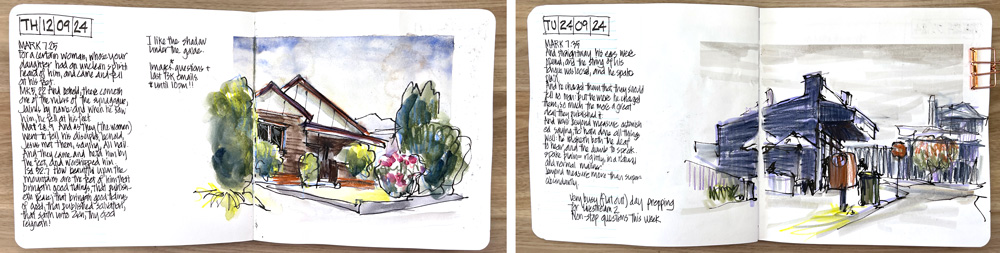 TH 12 09 24
MARK 7:25
For a certain woman, whose young
daughter had an unclean spirit
heard of him, and came and fell
at his feet.
MK 5.22 And behold, there cometh
one of the rulers of the synagogue,
Jairus by name and when he saw
him, he fell at his feet
Mat 28.9 And as they (the women)
went to tell his disciples behold,
Jesus met them, saying, All hail.
And they came, and held him by
the feet, and worshipped him.
Isa 52:7 How beautiful upon the
mountains are the feet of him that
bringeth good tidings, that publish-
eth peace; that bringeth good tidings
of good, that publisheth salvation,
that saith unto Zion, Thy God
reigneth!
I like the shadow
under the gable.
*
Image + questions +
last TSK emails
* until 10pm!!
TU 24 09 24
MARK 7:35
And straightway his ears were
opened, and the string of his
tongue was loosed, and he spake
plain
And he charged them that they should
tell no man: but the more he charged
them, so much the more a great
deal they published it
And were beyond measure astonish
ed saying, He hath done all things
well: he maketh both the deaf
to hear and the dumb to speak.
spake plain = rightly, in a natural
and normal manner
beyond measure more than super
abundantly.
Very busy (flat out) day prepping
for livestream 2
Non-stop questions this week.